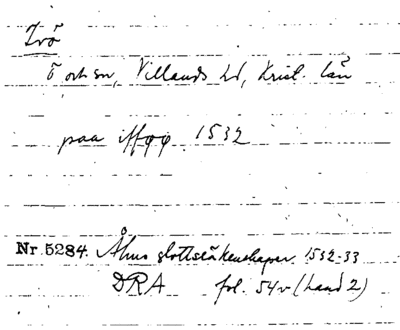 Ivö
ö och sn, Villands hd, Krist. län
paa ifføø 1532
Nr. 5284. Åhus slottsräkenskaper. 1532-33
DRA fol. 54v (hand 2)